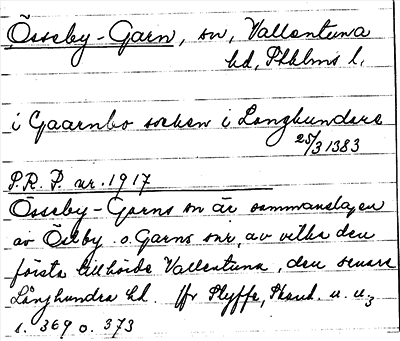 Össeby-Garn, sn, Vallentuna
hd, Sthlms l.
i Gaarnbo socken i Langhundare
25/3 1383
P.R.P. nr. 1917
Össeby-Garns sn är sammanslagen
av Öseby o. Garns snr, av vilka den
första tillhörde Vallentuna, den senare
Långhundra hd. jfr Styffe, Skand. u. u.3
s. 369 o. 373